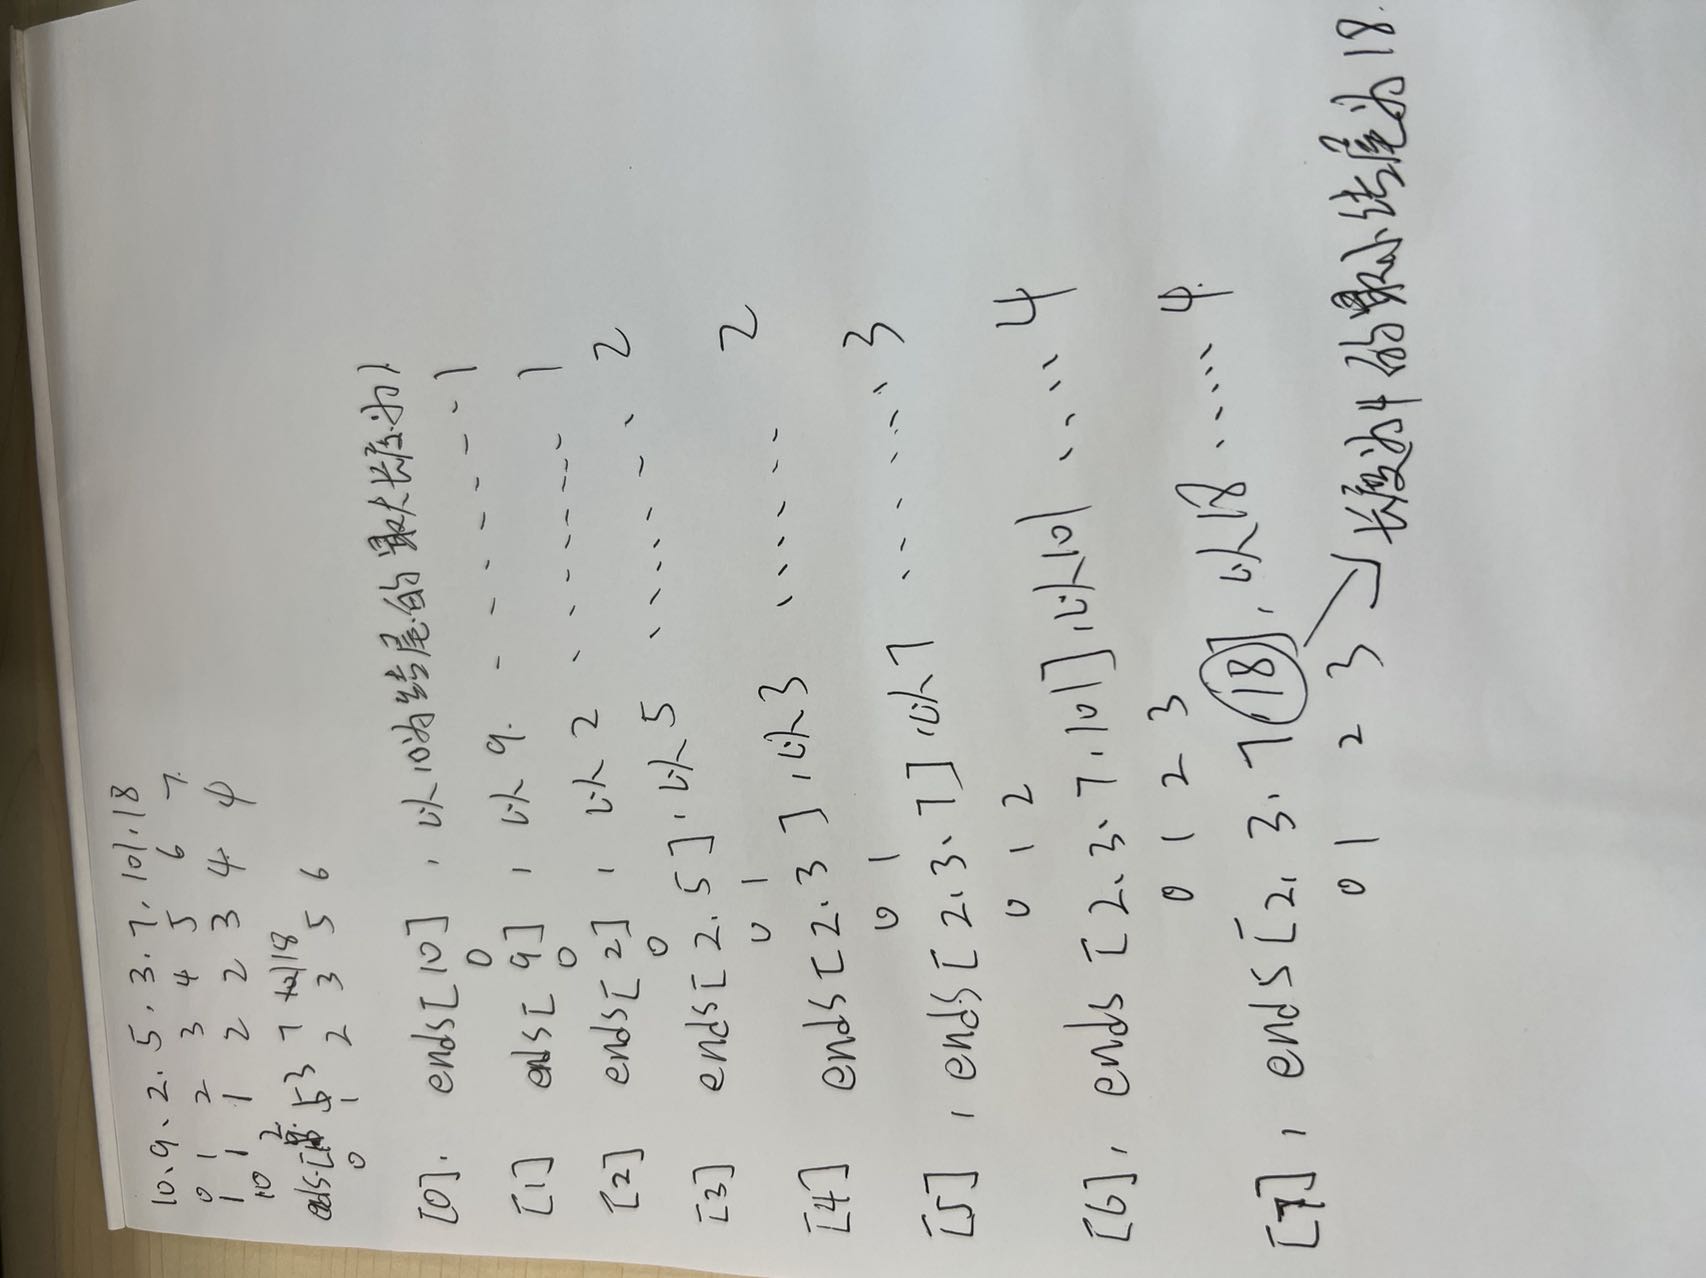 10、9、2、5、3、7、101、18
0 1 2 3 4 5 6 7
1 1 1 2 2 3 4 4
10 2
ends[ 5 3 7 18
0 1 2 3 5 6
[0]. ends[10] , 以10为结尾的最大长度为1
0
[1] ends[9] , 以9 ........ 1
0
[2] ends[2] , 以2 ........ 1
0
[3] ends[2、5] , 以5 ........ 2
0 1
[4] ends[2、3] , 以3 ...... 2
0 1
[5] , ends[2、3、7] , 以7 ....... 3
0 1 2
[6], ends [2、3、7、101] , 以101 .... 4
0 1 2 3
[7] , ends[2、3、7、18] , 以18 ..... 4
0 1 2 3
长度为4的最小结尾为18.